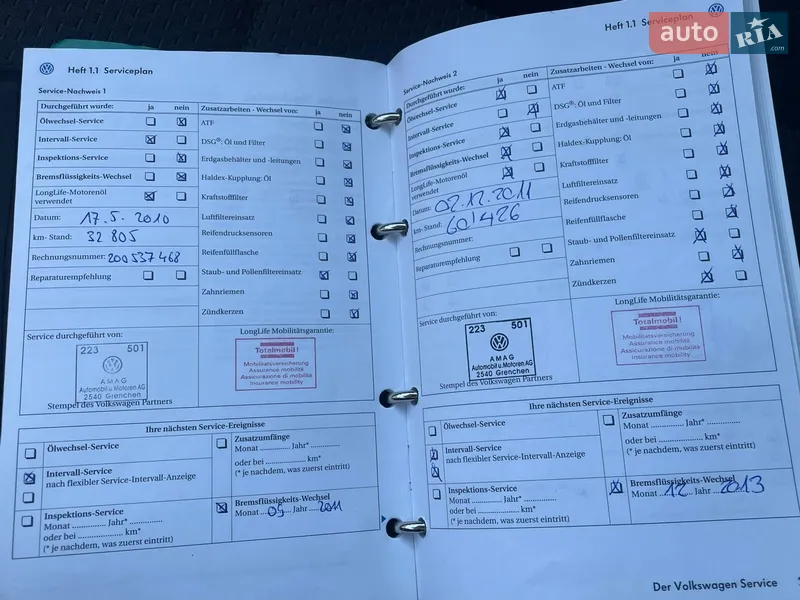 Heft 1.1 Serviceplan
Service-Nachweis 1
Durchgeführt wurde: ja nein
Ölwechsel-Service
Intervall-Service
Inspektions-Service
Bremsflüssigkeits-Wechsel
LongLife-Motorenöl
verwendet
Datum: 17.5.2010
km- Stand: 32 805
Rechnungsnummer: 200537468
Reparaturempfehlung
Zusatzarbeiten - Wechsel von: ja nein
ATF
DSG®: Öl und Filter
Erdgasbehälter und -leitungen
Haldex-Kupplung: Öl
Kraftstofffilter
Luftfiltereinsatz
Reifendrucksensoren
Reifenfüllflasche
Staub- und Pollenfiltereinsatz
Zahnriemen
Zündkerzen
Service durchgeführt von:
223 501
AMAG
Automobil u. Motoren AG
2540 Grenchen
Stempel des Volkswagen Partners
LongLife Mobilitätsgarantie:
Totalmobil!
Mobilitätsversicherung
Assurance mobilité
Assicurazione di mobilità
Insurance mobility
Ihre nächsten Service-Ereignisse
Ölwechsel-Service
Intervall-Service
nach flexibler Service-Intervall-Anzeige
Inspektions-Service
Monat .............. Jahr* ..............
oder bei .................... km*
(* je nachdem, was zuerst eintritt)
Zusatzumfänge
Monat .............. Jahr* ..............
oder bei .................... km*
(* je nachdem, was zuerst eintritt)
Bremsflüssigkeits-Wechsel
Monat 05 Jahr 2011
Heft 1.1 Serviceplan
auto RIA
.com
Service-Nachweis 2
Durchgeführt wurde: ja nein
Ölwechsel-Service
Intervall-Service
Inspektions-Service
Bremsflüssigkeits-Wechsel
LongLife-Motorenöl
verwendet
Datum: 02.12.2011
km- Stand: 60'426
Rechnungsnummer:
Reparaturempfehlung
Zusatzarbeiten - Wechsel von: ja nein
ATF
DSG®: Öl und Filter
Erdgasbehälter und -leitungen
Haldex-Kupplung: Öl
Kraftstofffilter
Luftfiltereinsatz
Reifendrucksensoren
Reifenfüllflasche
Staub- und Pollenfiltereinsatz
Zahnriemen
Zündkerzen
Service durchgeführt von:
223 501
AMAG
Automobil u. Motoren AG
2540 Grenchen
Stempel des Volkswagen Partners
LongLife Mobilitätsgarantie:
Totalmobil!
Mobilitätsversicherung
Assurance mobilité
Assicurazione di mobilità
Insurance mobility
Ihre nächsten Service-Ereignisse
Ölwechsel-Service
Intervall-Service
nach flexibler Service-Intervall-Anzeige
Inspektions-Service
Monat .............. Jahr* ..............
oder bei .................... km*
(* je nachdem, was zuerst eintritt)
Zusatzumfänge
Monat .............. Jahr* ..............
oder bei .................... km*
(* je nachdem, was zuerst eintritt)
Bremsflüssigkeits-Wechsel
Monat 12 Jahr 2013
Der Volkswagen Service